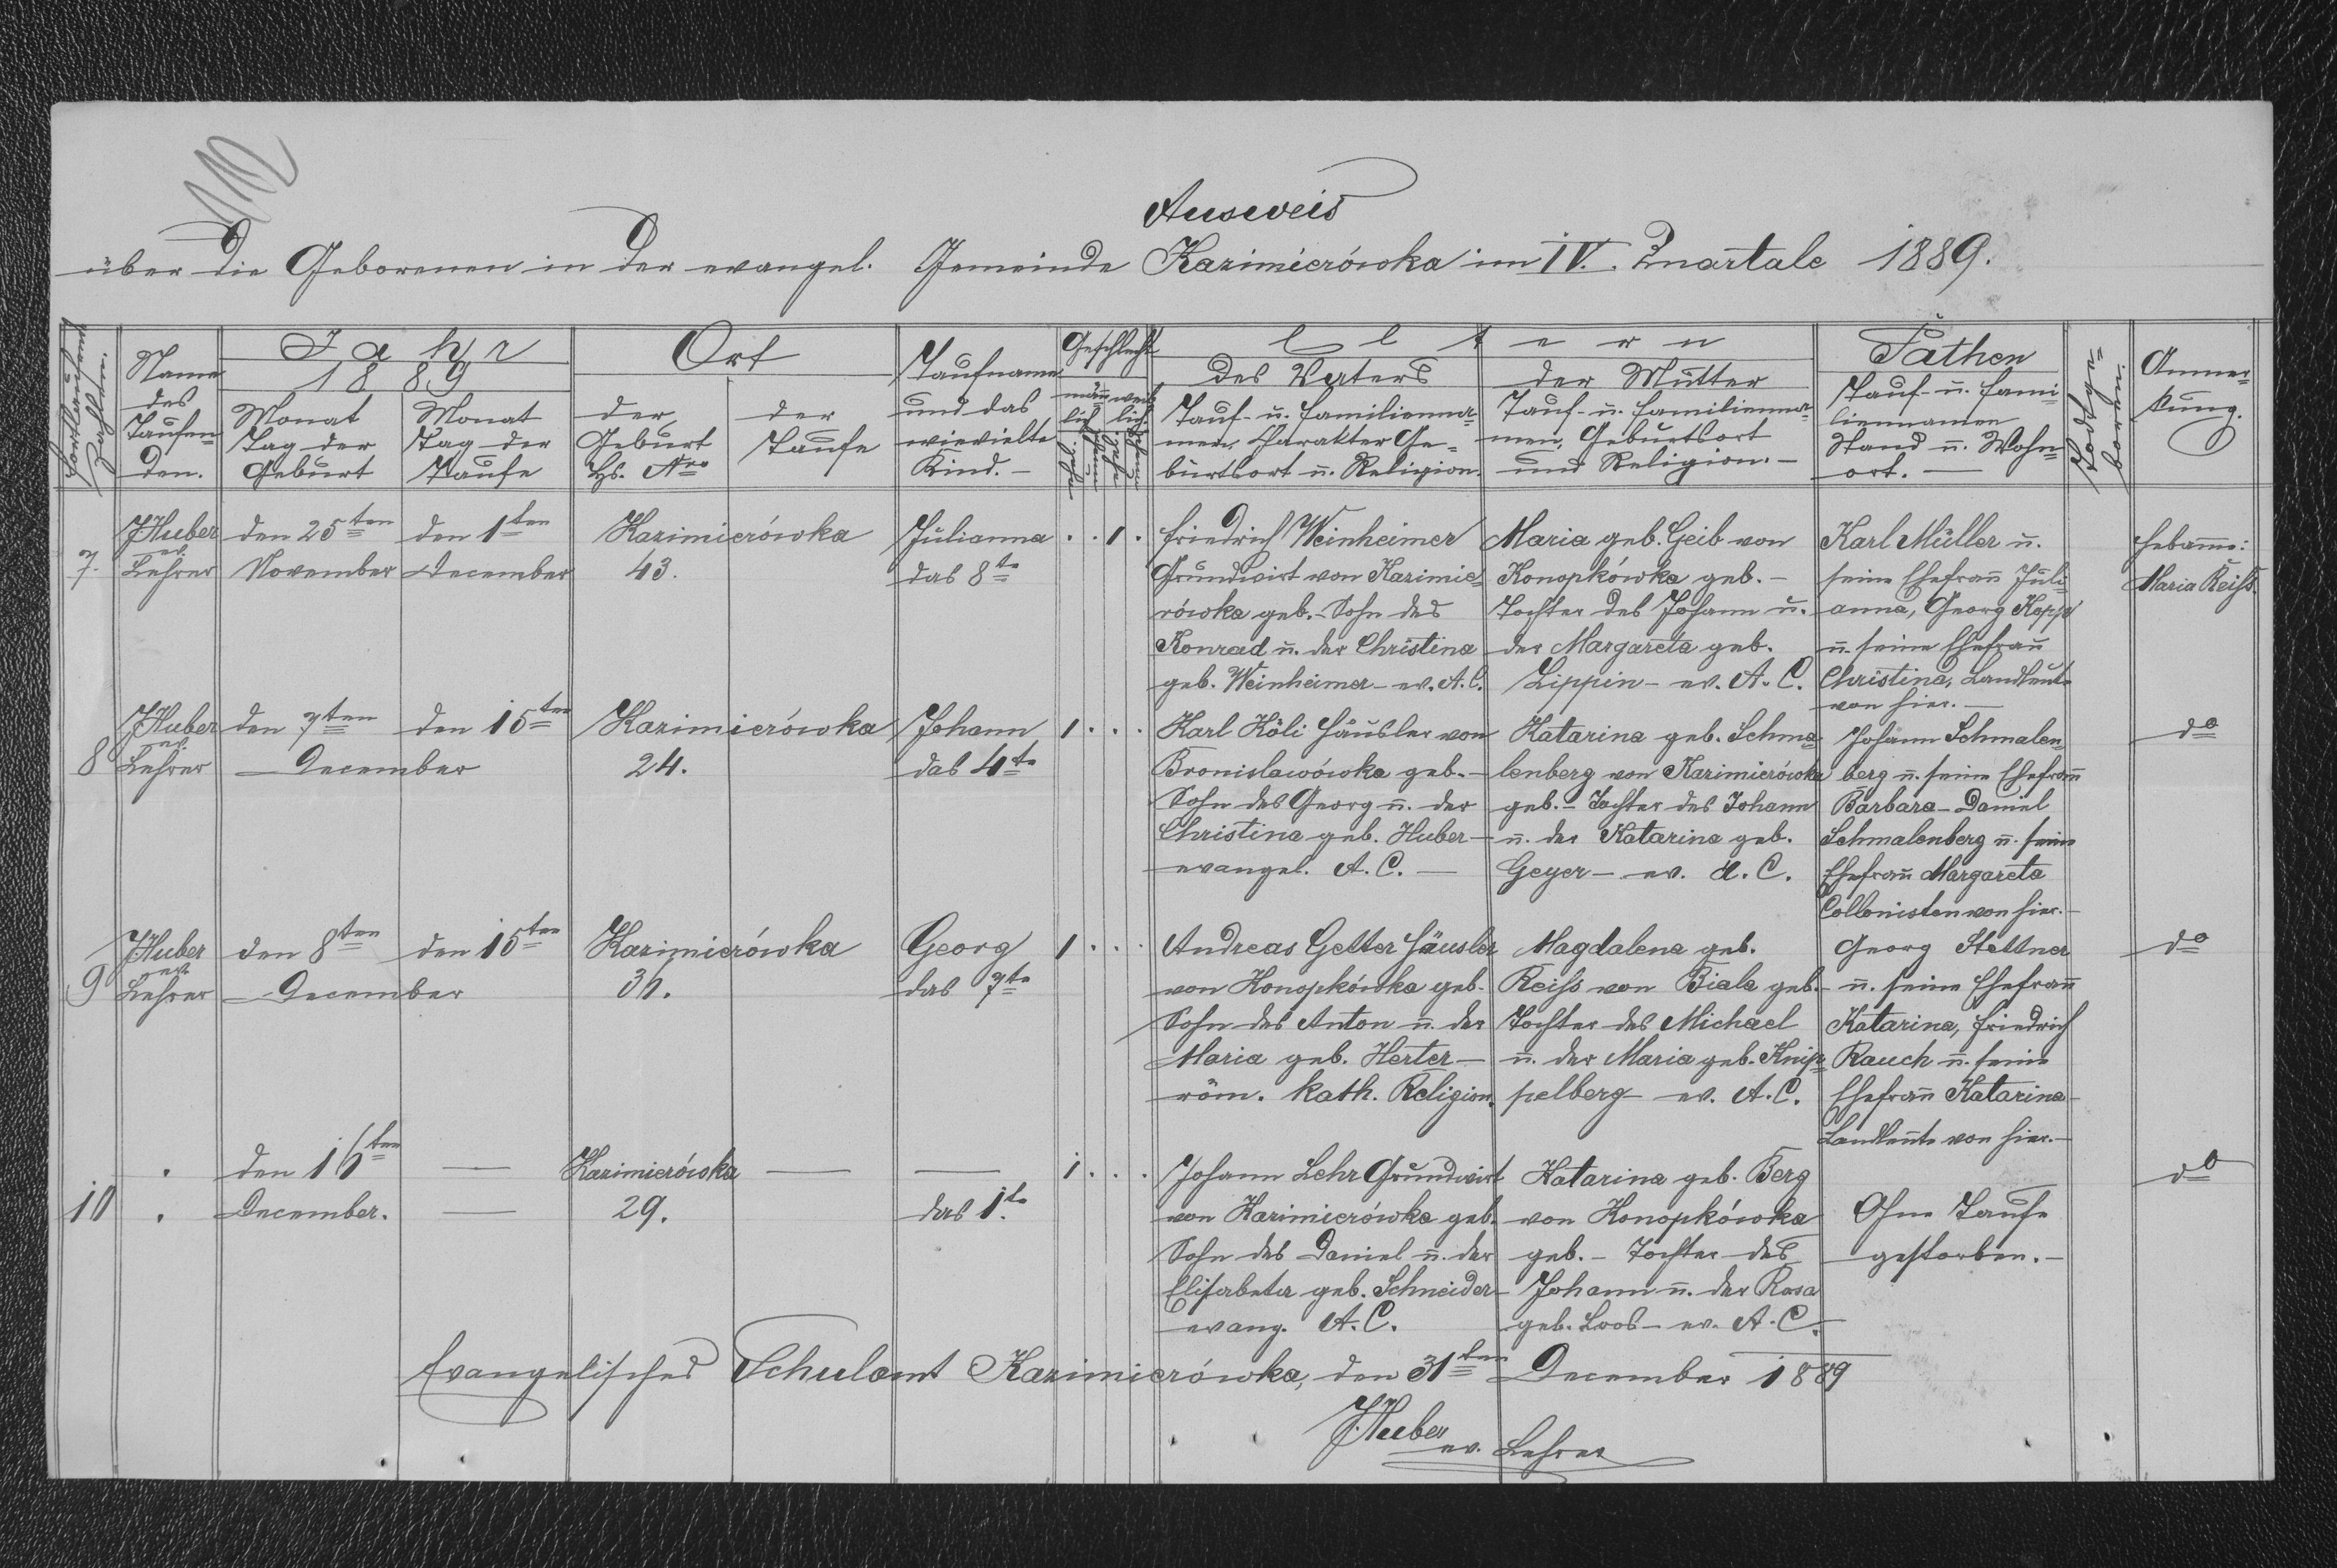 110
Ausweis
über die Geborenen in der evangel. Gemeinde Kazimierówka im IV. Quartale 1889.
Fortlaufende Zahlen.
Name des Taufen- den.
Jahr 1889
Monat Tag der Geburt
Monat Tag der Taufe
Ort
der Geburt Hs. Nro
der Taufe
Taufname und das wievielte Kind. –
Geschlecht
männ- lich
weib- lich
Eltern
des Vaters
Tauf- u. Familienna- men, Charakter Ge- burtsort u. Religion.
der Mutter
Tauf- u. Familienna- men, Geburtsort und Religion. –
Pathen
Tauf- u. Fami- liennamen Stand u. Wohn- ort. –
Anmer- kung.
7.
JHuber ev. Lehrer
den 25ten November
den 1ten December
Kazimierówka 43.
Julianna das 8te
1
Friedrich Weinheimer
Grundwirt von Kazimie-
rówka geb. – Sohn des
Konrad u. der Christina
geb. Weinheimer – ev. A. C.
Maria geb. Geib von
Konopkówka geb. –
Tochter des Johann u.
der Margareta geb.
Lippin – ev. A. C.
Karl Müller u.
seine Ehefrau Juli-
anna, Georg Kopp
u. seine Ehefrau
Christina, Landleute
von hier. –
Hebamme:
Maria Reiss.
8
JHuber ev. Lehrer
den 7ten
den 15ten
December
Kazimierówka 24.
Johann das 4te
1
Karl Köli Häusler von
Bronislawówka geb. –
Sohn des Georg u. der
Christina geb. Huber –
evangel. A. C. –
Katarina geb. Schma-
lenberg von Kazimierówka
geb. – Tochter des Johann
u. der Katarina geb.
Geyer – ev. A. C.
Johann Schmalen-
berg u. seine Ehefrau
Barbara – Daniel
Schmalenberg u. seine
Ehefrau Margareta
Collonisten von hier. –
do
9
JHuber ev. Lehrer
den 8ten
den 15ten
December
Kazimierówka 36.
Georg das 7te
1
Andreas Getter Häusler
von Konopkówka geb.
Sohn des Anton u. der
Maria geb. Herter –
röm. kath. Religion.
Magdalena geb.
Reiss von Biala geb. –
Tochter des Michael
u. der Maria geb. Knip-
pelberg – ev. A. C.
Georg Stettner
u. seine Ehefrau
Katarina, Friedrich
Rauch u. seine
Ehefrau Katarina –
Landleute von hier. –
do
10
den 16ten December.
Kazimierówka 29.
das 1te
1
Johann Lehr Grundwirt
von Kazimierówka geb.
Sohn des Daniel u. der
Elisabeta geb. Schneider –
evang. A. C.
Katarina geb. Berg
von Konopkówka
geb. – Tochter des
Johann u. der Rosa
geb. Loos – ev. A. C.
Ohne Taufe
gestorben. –
do
Evangelisches Schulamt Kazimierówka, den 31ten December 1889
JHuber
ev. Lehrer